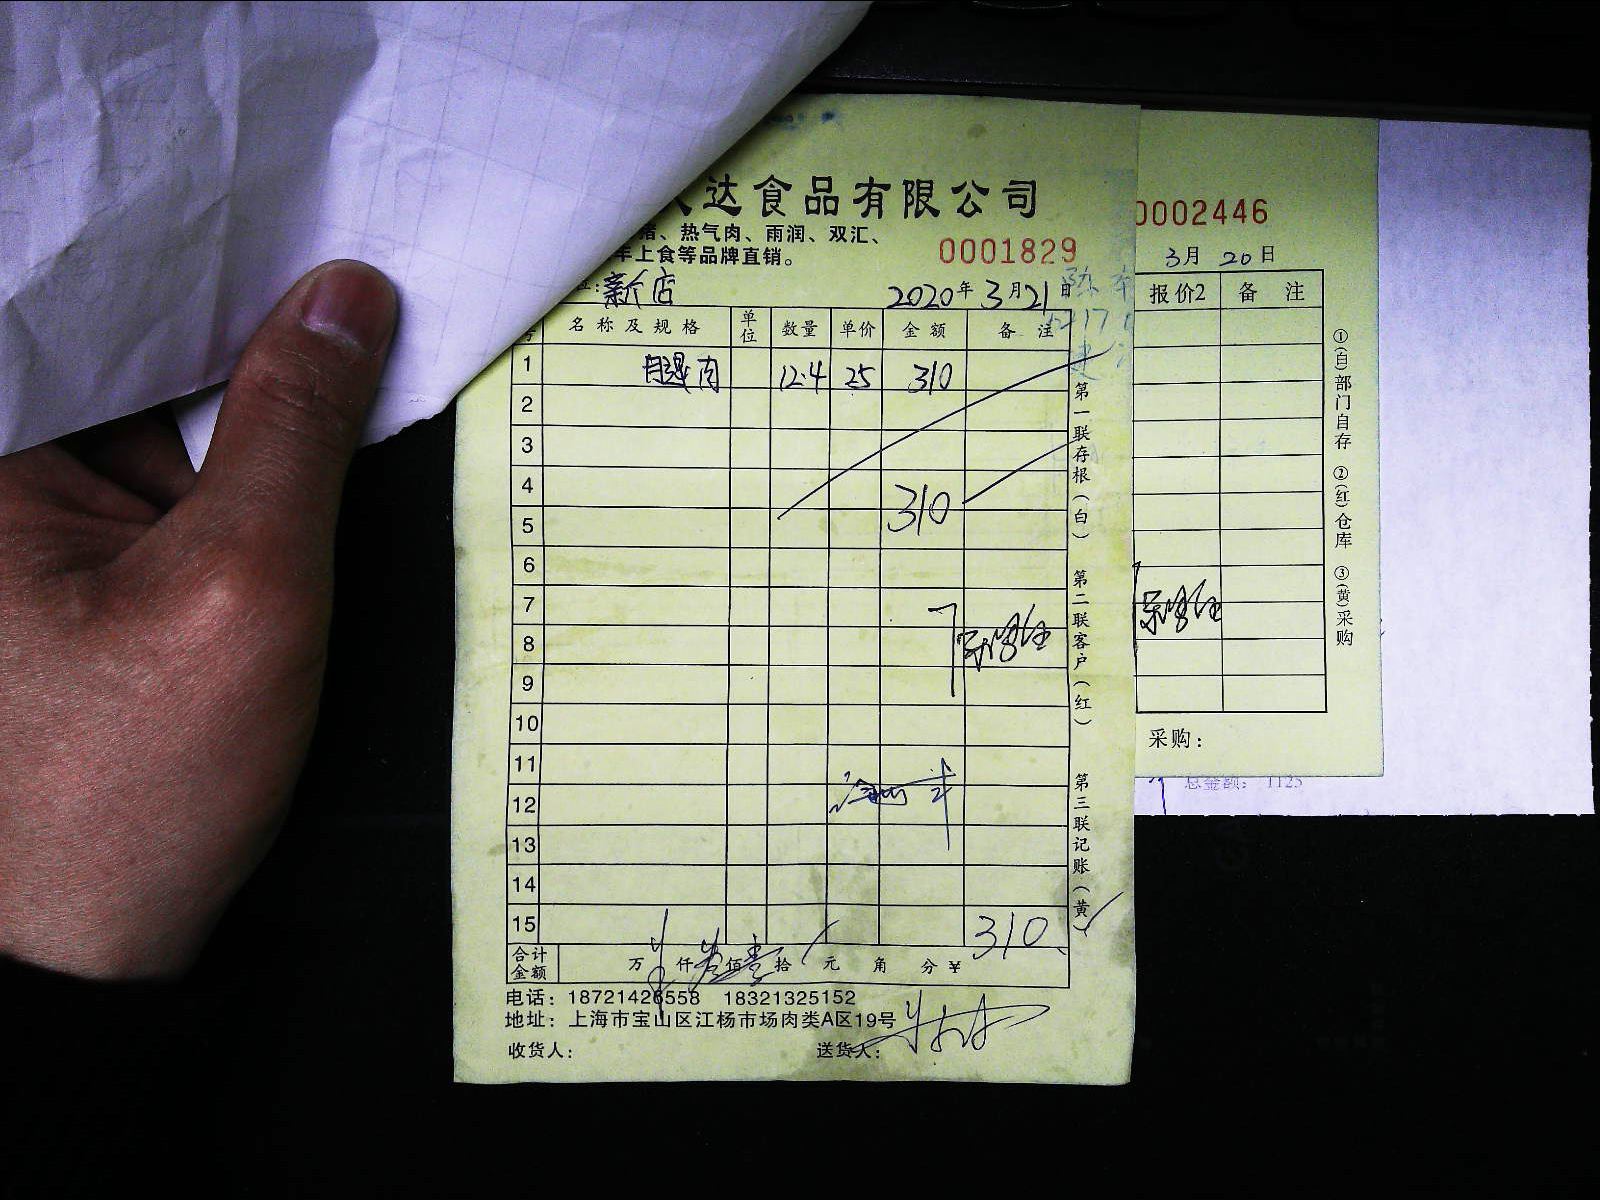 达食品有限公司
猪、热气肉、雨润、双汇、
上食等品牌直销。
0001829
2020年3月21日
名称及规格 单位 数量 单价 金额 备注
1 腿肉 12.4 25 310
2
3
4
5 310
6
7
8
9
10
11
12
13
14
15 310
合计金额 万 仟 佰 拾 元 角 分 ¥
电话：18721426558 18321325152
地址：上海市宝山区江杨市场肉类A区19号
收货人： 送货人：
第一联存根（白） 第二联客户（红） 第三联记账（黄）
0002446
3月20日
报价2 备注
①(白)部门自存 ②(红)仓库 ③(黄)采购
采购：
总金额： 1125